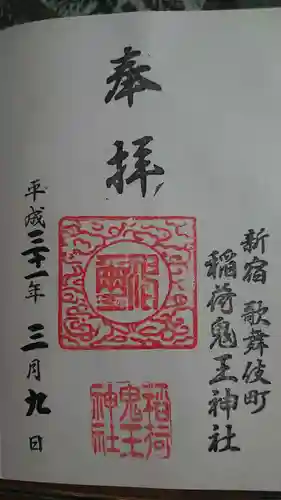 新宿 歌舞伎町
稲荷鬼王神社
奉拝
平成三十一年 三月九日
稲荷
鬼王
神社